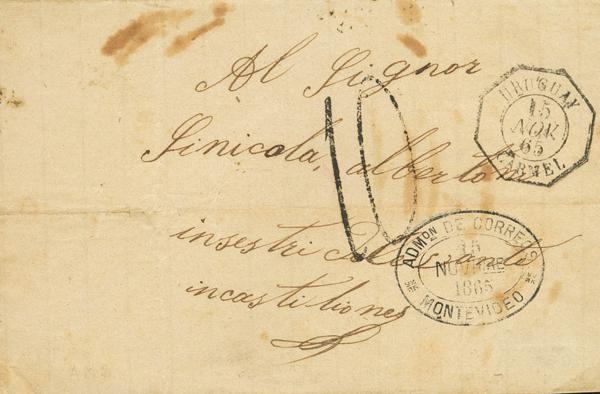 Al Signor
Sinicola, albertom
insestri
incastiliones
10
URUGUAY
15
NOV.
65
CARMEL
ADMON DE CORREOS
15
NOVBRE
1865
MONTEVIDEO